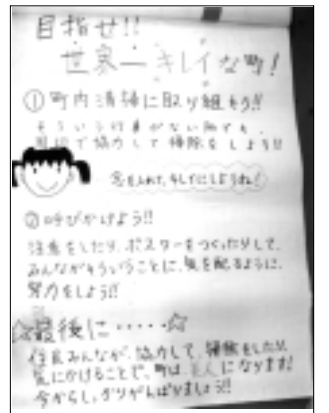 目指せ!!
世界一キレイな町!
① 町内清掃に取り組もう!!
そういう行事がない所でも、
周辺で協力して掃除をしよう!!
心を入れて、キレイにしようね!
② 呼びかけよう!!
注意をしたり、ポスターをつくったりして、
みんながそういうことに、気を配るように、
努力をしよう!!
☆最後に・・・・・☆
住民みんなが、協力して、掃除をしたり、
気にかけることで、町は、になります!
今からしっかりがんばりましょう!!